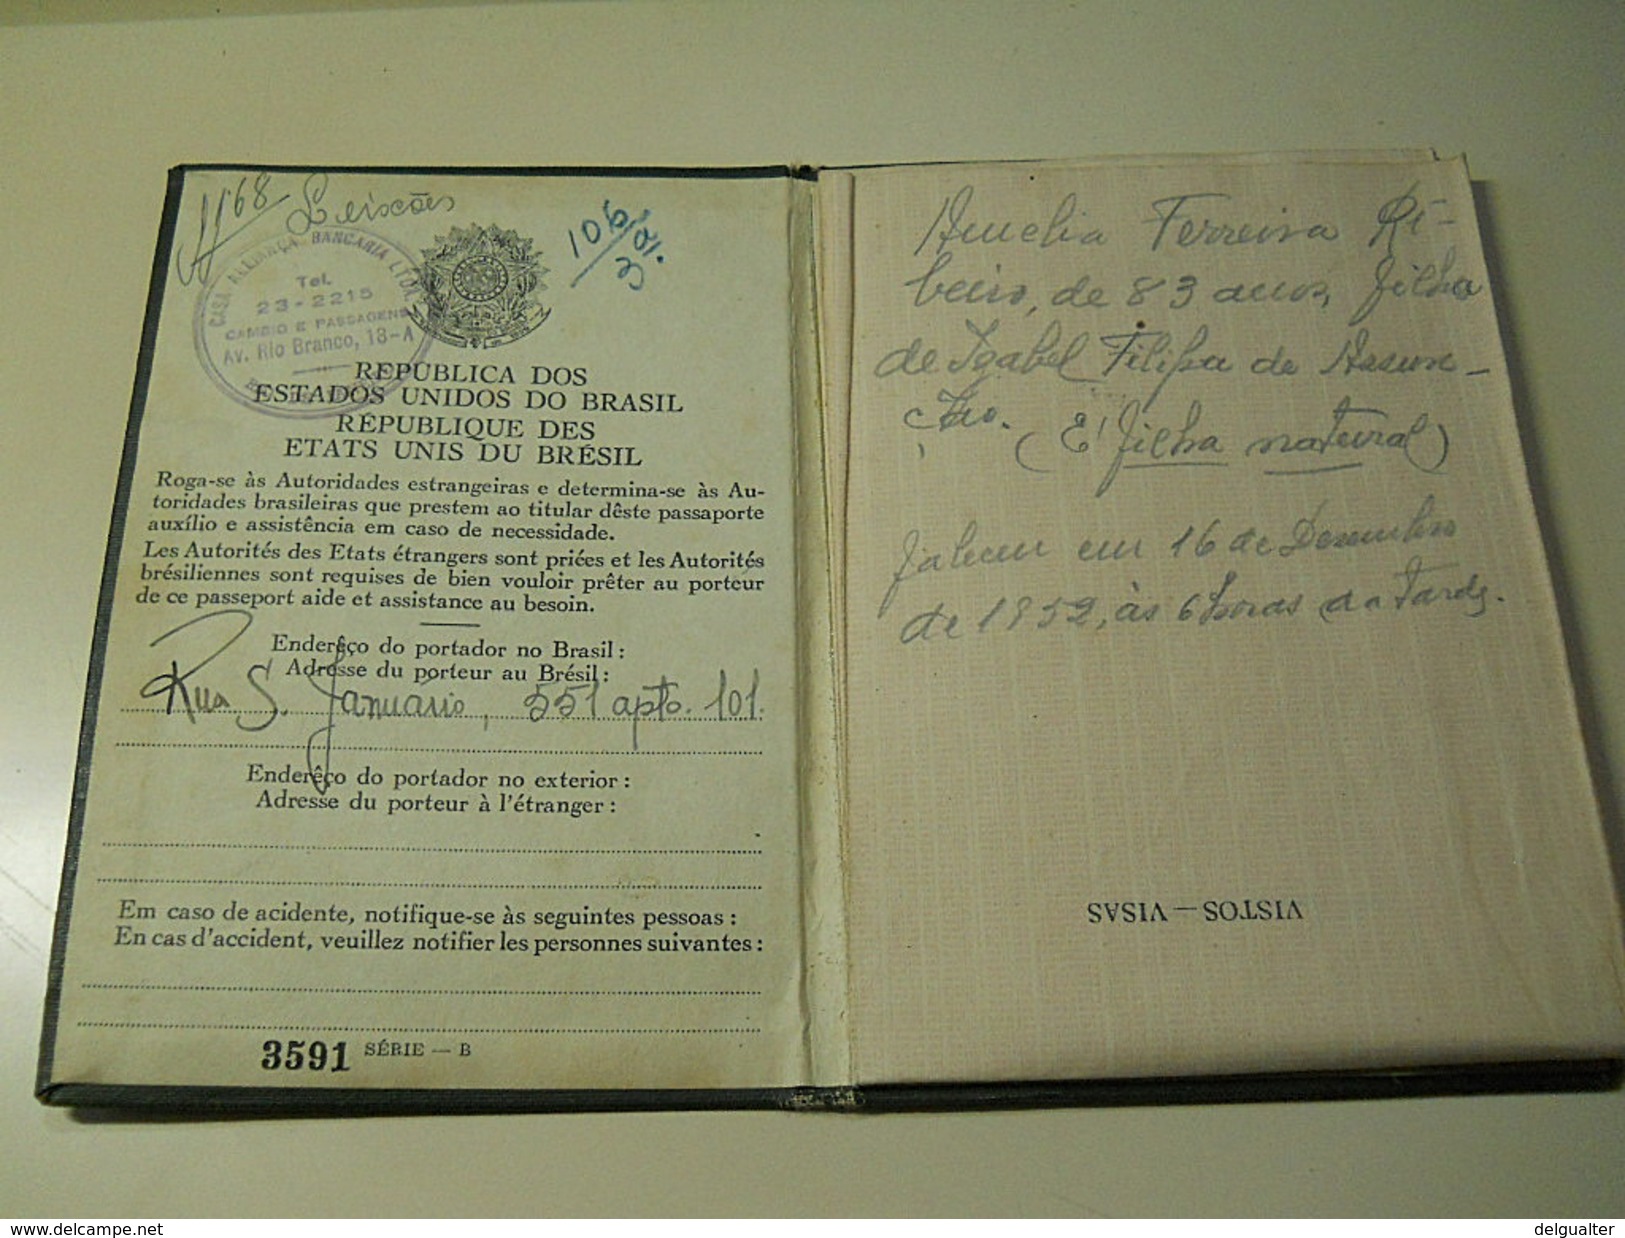 68 Leixões
106
CASA ALIANÇA BANCARIA LTDA.
Tel.
23-2215
CAMBIO E PASSAGENS
Av. Rio Branco, 13-A
REPÚBLICA DOS
ESTADOS UNIDOS DO BRASIL
RÉPUBLIQUE DES
ETATS UNIS DU BRÉSIL
Roga-se às Autoridades estrangeiras e determina-se às Au-
toridades brasileiras que prestem ao titular dêste passaporte
auxílio e assistência em caso de necessidade.
Les Autorités des Etats étrangers sont priées et les Autorités
brésiliennes sont requises de bien vouloir prêter au porteur
de ce passeport aide et assistance au besoin.
Enderêço do portador no Brasil :
Adresse du porteur au Brésil :
Rua S. Januário, 551 apto. 101.
Enderêço do portador no exterior :
Adresse du porteur à l'étranger :
Em caso de acidente, notifique-se às seguintes pessoas :
En cas d'accident, veuillez notifier les personnes suivantes :
3591 SÉRIE — B
Amelia Ferreira Ri-
beiro, de 83 anos, filha
de Izabel Filipa de Assun-
ção. (E' filha natural)
faleceu em 16 de Dezembro
de 1952, às 6 horas da tarde.
VISTOS — VISAS
www.delcampe.net
delgualter